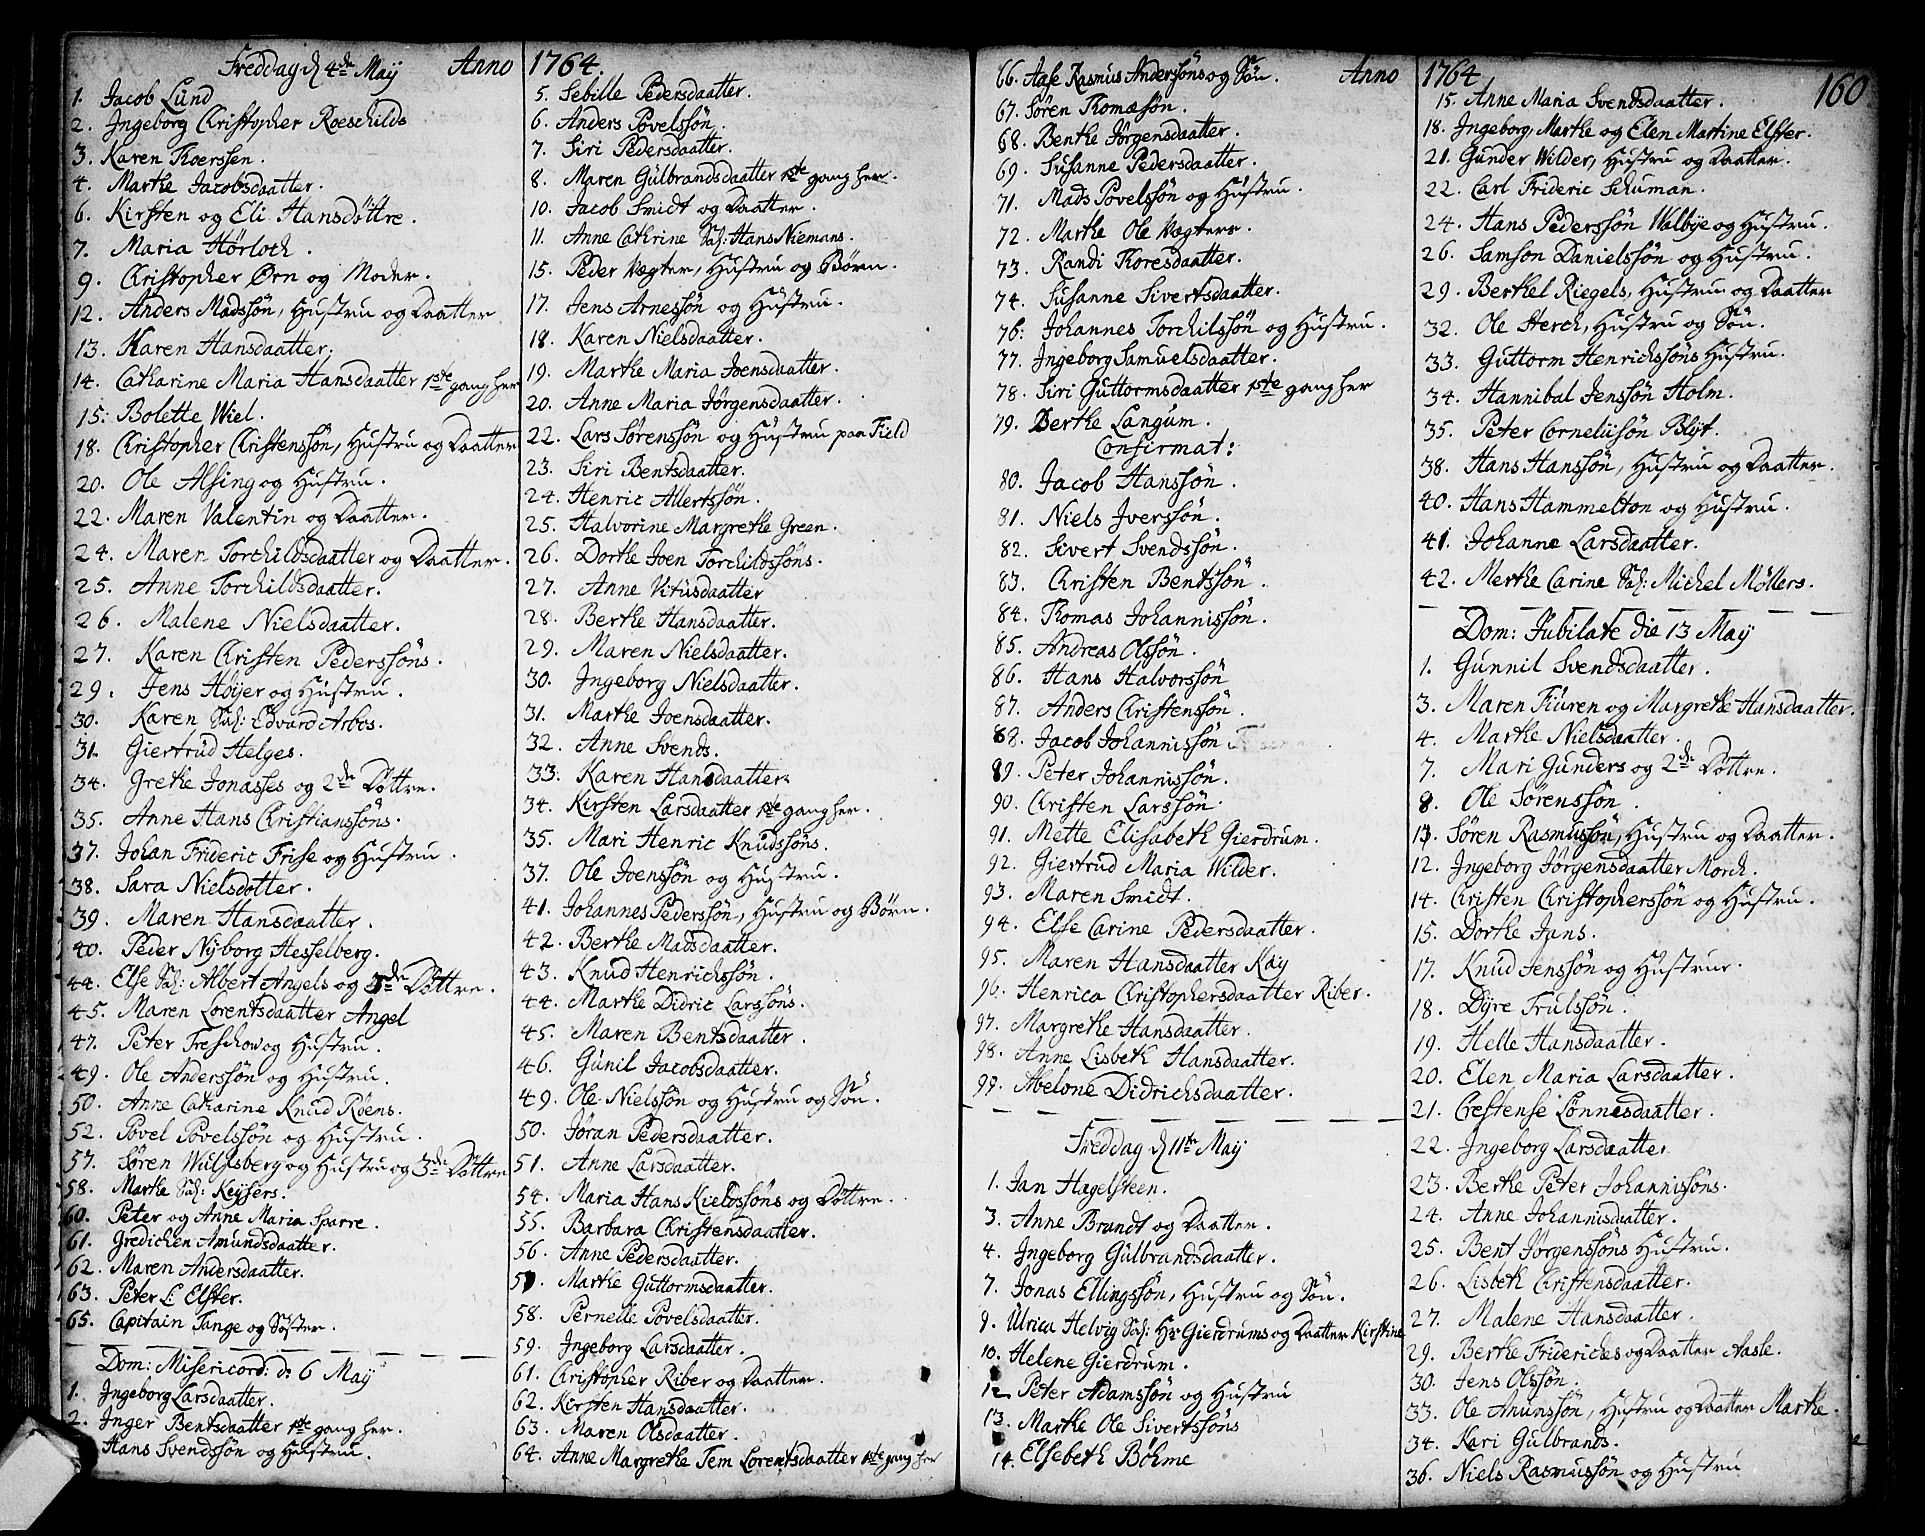 Freddag d 4de Maij Anno
1. Jacob Lund
2. Jngeborg Christopher Roeschilds
3. Karen Thoerssen.
4. Marthe Jacobsdaatter.
6. Kirsten og Eli Hansdöttre.
7. Maria Hörloch.
9. Christopher Ørn og Moder.
12. Anders Madssön, Hustru og Daatter
13. Karen Hansdaatter.
14. Catharine Maria Hansdaatter 1ste gang her
15. Bolette Wiel.
18. Christopher Christenssön, Hustru og Daatter
20. Ole Alsing og Hustru.
22. Maren Valentin og Daatter.
24. Maren Torchildsdaatter og Daatter.
25. Anne Torchildsdaatter.
26. Malene Nielsdaatter.
27. Karen Christen Pederssöns.
29. Jens Höyer og Hustru.
30. Karen Sal: Edvard Arbos.
31. Giertrud Helges.
34. Grethe Jonasses og 2de Döttre.
35. Anne Hans Christianssöns.
37. Johan Frideric Frise og Hustru.
38. Sara Nielsdotter.
39. Maren Hansdaatter.
40. Peder Nÿborg Hesselberg.
44. Else Sal: Albert Angels og 3de Döttre.
45. Maren Lorentsdaatter Angel
47. Peter Treschow og Hustru.
49. Ole Anderssön og Hustru.
50. Anne Catharine Knud Röens.
52. Povel Povelssön og Hustru.
57. Sören Wulfsberg og Hustru og 3de Döttre
58. Marthe Sal: Keysers.
60. Peter og Anne Maria Sparre.
61. Gredichen Amundsdaatter.
62. Maren Andersdaatter.
63. Peter L: Elster.
65. Capitain Tange og Söster.
Dom: Misericord: d: 6 Maij
1. Jngeborg Larsdaatter.
2. Jnger Bentsdaatter 1ste gang her.
Hans Svendssön og Hustru.
1764.
5. Sebille Pedersdaatter.
6. Anders Povelssön.
7. Siri Pedersdaatter.
8. Maren Gulbrandsdaatter 1ste gang her.
10. Jacob Smidt og Daatter.
11. Anne Cathrine Sal: Hans Niemans.
15. Peder Vægter, Hustru og Börn.
17. Jens Arnessön og Hustru.
18. Karen Nielsdaatter.
19. Marthe Maria Joensdaatter.
20. Anne Maria Jörgensdaatter.
22. Lars Sörenssön og Hustru paa Field
23. Siri Bentsdaatter.
24. Henric Allertssön.
25. Halvorine Margrethe Green.
26. Dorthe Joen Torchildssöns.
27. Anne Vitusdaatter
28. Berthe Hansdaatter.
29. Maren Nielsdaatter.
30. Jngeborg Nielsdaatter.
31. Marthe Joensdaatter.
32. Anne Svends.
33. Karen Hansdaatter.
34. Kirsten Larsdaatter 1ste gang her.
35. Mari Henric Knudssöns.
37. Ole Joenssön og Hustru.
41. Johannes Pederssön, Hustru og Börn.
42. Berthe Madsdaatter.
43. Knud Henrichssön.
44. Marthe Didric Larssöns.
45. Maren Bentsdaatter.
46. Gunil Jacobsdaatter.
49. Ole Nielssön og Hustru og Sön.
50. Jöran Pedersdaatter.
51. Anne Larsdaatter.
54. Maria Hans Kieldssöns og Döttre.
55. Barbara Christensdaatter.
56. Anne Pedersdaatter.
57. Marthe Guttormsdaatter.
58. Pernelle Povelsdaatter.
59. Jngeborg Larsdaatter.
61. Christopher Riber og Daatter.
62. Kirsten Hansdaatter.
63. Maren Olsdaatter.
64. Anne Margrethe Tem Lorentsdaatter 1ste gang her
66. Aase Rasmus Anderssöns og Sön. Anno
67. Sören Thomæsön.
68. Benthe Jörgensdaatter.
69. Susanne Pedersdaatter.
71. Mads Povelssön og Hustru.
72. Marthe Ole Vægters.
73. Randi Thoresdaatter.
74. Susanne Sivertsdaatter.
76. Johannes Torchilssön og Hustru.
77. Jngeborg Samuelsdaatter.
78. Siri Guttormsdaatter 1ste gang her
79. Berthe Langum.
Confirmat:
80. Jacob Hanssön.
81. Niels Jverssön.
82. Sivert Svendssön.
83. Christen Bentssön.
84. Thomas Johannissön.
85. Andreas Olssön.
86. Hans Halvorssön
87. Anders Christenssön.
88. Jacob Johannissön
89. Peter Johannissön.
90. Christen Larssön.
91. Mette Elisabeth Gierdrum.
92. Giertrud Maria Wilder.
93. Maren Smidt.
94. Else Carine Pedersdaatter.
95. Maren Hansdaatter Kaÿ
96. Henrica Christophersdaatter Riber.
97. Margrethe Hansdaatter.
98. Anne Lisbeth Hansdaatter.
99. Abelone Didrichsdaatter.
Freddag d 11te Maij
1. Jan Hagelsteen.
3. Anne Brandt og Daatter.
4. Jngeborg Gulbrandsdaatter.
7. Jonas Ellingssön, Hustru og Sön.
9. Ulrica Helvig Sal: Hr Gierdrums og Daatter Kirstine
10. Helene Gierdrum.
12. Peter Adamssön og Hustru
13. Marthe Ole Sivertssöns
14. Elsebeth Böhme
1764. 160
15. Anne Maria Svendsdaatter.
18. Jngeborg Marthe og Elen Martine Elster.
21. Gunder Wilder, Hustru og Daatter.
22. Carl Frideric Schuman.
24. Hans Pederssön Walbye og Hustru.
26. Samson Danielssön og Hustru.
29. Berthel Riegels, Hustru og Daatter
32. Ole Herch, Hustru og Sön.
33. Guttorm Henrichssöns Hustru.
34. Hannibal Jenssön Holm.
35. Peter Corneliisön Blyt.
38. Hans Hanssön, Hustru og Daatter.
40. Hans Hammelton og Hustru.
41. Johanne Larsdaatter.
42. Merthe Carine Sal: Michel Möllers.
Dom: Jubilate die 13 Maij
1. Gunnil Svendsdaatter.
3. Maren Fiuren og Margrethe Hansdaatter.
4. Marthe Nielsdaatter.
7. Mari Gunders og 2de Döttre.
8. Ole Sörenssön.
11. Sören Rasmussön, Hustru og Daatter.
12. Jngeborg Jörgensdaatter Morch.
14. Christen Christopherssön og Hustru.
15. Dorthe Jans.
17. Knud Jenssön og Hustrue.
18. Dyre Trulssön.
19. Helle Hansdaatter.
20. Elen Maria Larsdaatter.
21. Crestense Lönnesdaatter.
22. Jngeborg Larsdaatter
23. Berthe Peter Johannissöns.
24. Anne Johannisdaatter.
25. Bent Jörgenssöns Hustru.
26. Lisbeth Christensdaatter.
27. Malene Hansdaatter.
29. Berthe Friderichs og Daatter Aasle.
30. Jens Olssön.
33. Ole Anunssön, Hustru og Daatter Marthe.
34. Kari Gulbrands.
36. Niels Rasmussön og Hustru